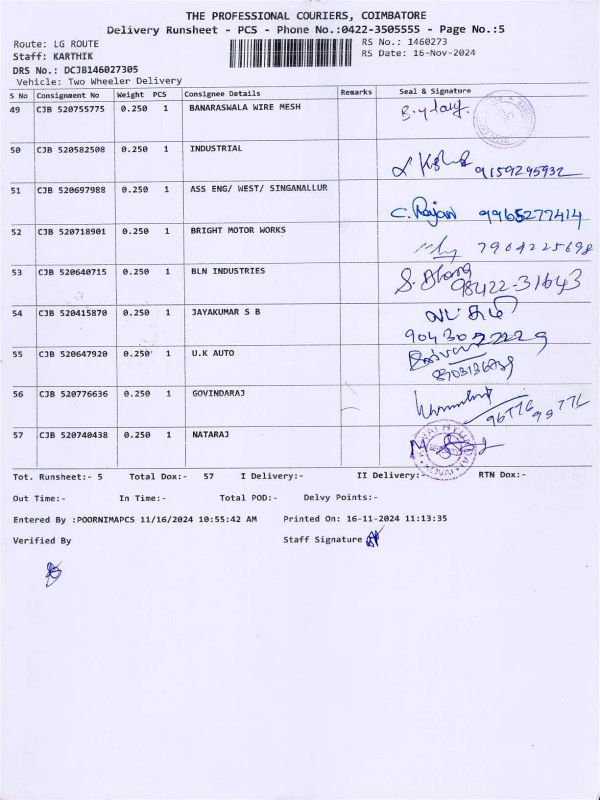 THE PROFESSIONAL COURIERS, COIMBATORE
Delivery Runsheet - PCS - Phone No.:0422-3505555 - Page No.:5
Route: LG ROUTE RS No.: 1460273
Staff: KARTHIK RS Date: 16-Nov-2024
DRS No.: DCJB146027305
Vehicle: Two Wheeler Delivery
S No Consignment No Weight PCS Consignee Details Remarks Seal & Signature
49 CJB 520755775 0.250 1 BANARASWALA WIRE MESH
50 CJB 520582508 0.250 1 INDUSTRIAL
9159295932
51 CJB 520697988 0.250 1 ASS ENG/ WEST/ SINGANALLUR
C. Rajan 9965277414
52 CJB 520718901 0.250 1 BRIGHT MOTOR WORKS
7904225698
53 CJB 520640715 0.250 1 BLN INDUSTRIES
98422-31643
54 CJB 520415870 0.250 1 JAYAKUMAR S B
55 CJB 520647920 0.250 1 U.K AUTO
56 CJB 520776636 0.250 1 GOVINDARAJ
57 CJB 520740438 0.250 1 NATARAJ
Tot. Runsheet:- 5 Total Dox:- 57 I Delivery:- II Delivery:- RTN Dox:-
Out Time:- In Time:- Total POD:- Delvy Points:-
Entered By :POORNIMAPCS 11/16/2024 10:55:42 AM Printed On: 16-11-2024 11:13:35
Verified By Staff Signature